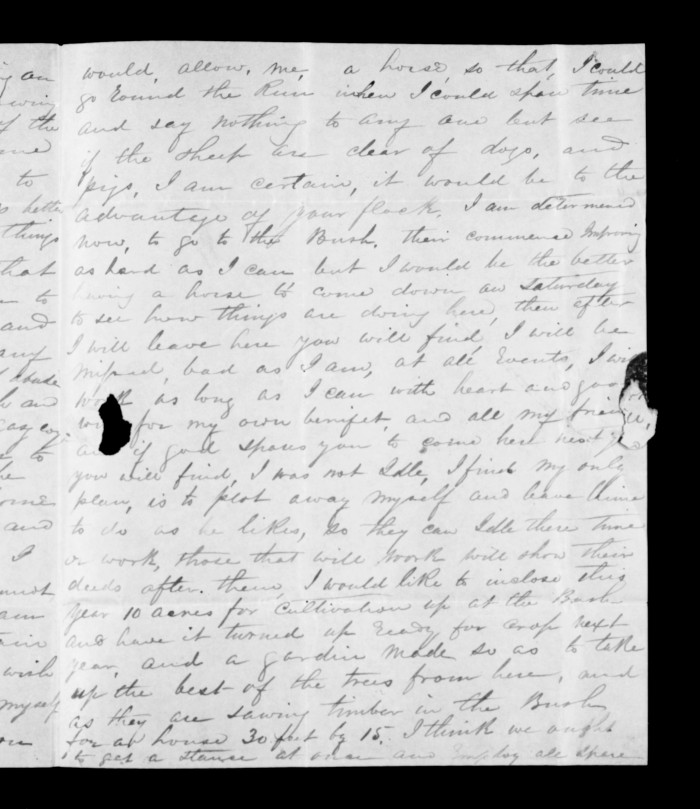 ing an
owing
of the
to
better
things
that
to
and
any
and
to
and
I
must
am
wish
myself
would, allow, me, a horse, so that, I could
go round the Run when I could spare time
and say nothing to any one but see
if the sheep are clear of dogs, and
pigs, I am certain, it would be to the
advantage of your flock. I am determined
now, to go to the Bush. their commence Improving
as hard as I can but I would be the better
having a horse to come down on Saturday
to see how things are doing here, then after
I will leave here you will find, I will be
missed, bad as I am, at all Events, I will
work as long as I can with heart and good
for my own benifet, and all my friends,
if god spares you to come here next
you will find, I was not Idle, I find my only
plan, is to plot away myself and leave
to do as he likes, so they can Idle there time
or work, those that will work will show their
deeds after. them, I would like to inclose this
year 10 acres for Cultivation up at the Bush
and have it turned up ready for crop next
year, and a gardin made so as to take
up the best of the trees from here, and
as they are sawing timber in the Bush
for a house 30 feet by 15. I think we ought
to get a stance at once and Employ all spare